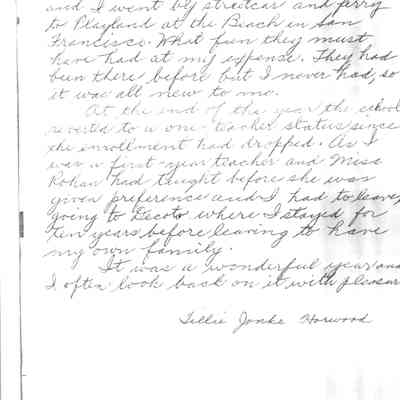 and I went by streetcar and ferry
to Playland at the Beach in San
Francisco. What fun they must
have had at my expense. They had
been there before but I never had, so
it was all new to me.
At the end of the year the school
reverted to a one-teacher status since
the enrollment had dropped. As I
was a first-year teacher and Miss
Rohan had taught before she was
given preference and I had to leave,
going to Decoto where I stayed for
ten years before leaving to have
my own family.
It was a wonderful year and
I often look back on it with pleasur
Tillie Jonke Horwood